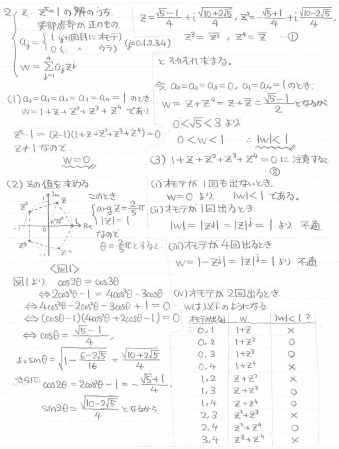 2. { z : z⁵=1 の解のうち,
実部虚部が正のもの
aⱼ = { 1 (j+1回目にオモテ)
0 ( 〃 ウラ) (j=0,1,2,3,4)
w = Σ aⱼzʲ
(1) a₀=a₁=a₂=a₃=a₄=1 のとき
w=1+z+z²+z³+z⁴ であり
z⁵-1=(z-1)(1+z+z²+z³+z⁴)=0
z≠1 なので
w=0
(2) zの値を求める
このとき
{ arg z = 2/5 π
|z|=1
なので
θ=2/5 π とすると
Im
Re
z
z²
z³
z⁴
<図1>
図1より cos2θ=cos3θ
⇔ 2cos²θ-1=4cos³θ-3cosθ
⇔ 4cos³θ-2cos²θ-3cosθ+1=0
⇔ (cosθ-1)(4cos²θ+2cosθ-1)=0
⇔ cosθ=(√5-1)/4,
よって sinθ=√(1-(6-2√5)/16)=√(10+2√5)/4
さらに, cos2θ=2cos²θ-1=-(√5+1)/4,
sin2θ=√(10-2√5)/4 となるから,
z=(√5-1)/4+i√(10+2√5)/4, z²=-(√5+1)/4+i√(10-2√5)/4,
z³=z̄², z⁴=z̄ …①
とそれぞれ求まる。
今 a₀=a₂=a₃=0, a₁=a₄=1 のとき
w=z+z⁴=z+z̄=(√5-1)/2 となるから
0<√5<3 より
0<w<1 ∴|w|<1
(3) 1+z+z²+z³+z⁴=0 に注意すると
②
(i) オモテが1回も出ないとき
w=0 より |w|<1 である。
(ii) オモテが1回出るとき
|w|=|zʲ|=|z|ʲ=1 より 不適
(iii) オモテが4回出るとき
w=1-zʲ=|z|ʲ=1 より 不適
(iv) オモテが2回出るとき
wは以下のようになる
オモテが出るj w |w|<1?
0,1 1+z ×
0,2 1+z² ○
0,3 1+z³ ○
0,4 1+z⁴ ×
1,2 z+z² ×
1,3 z+z³ ○
1,4 z+z⁴ ○
2,3 z²+z³ ×
2,4 z²+z⁴ ○
3,4 z³+z⁴ ×